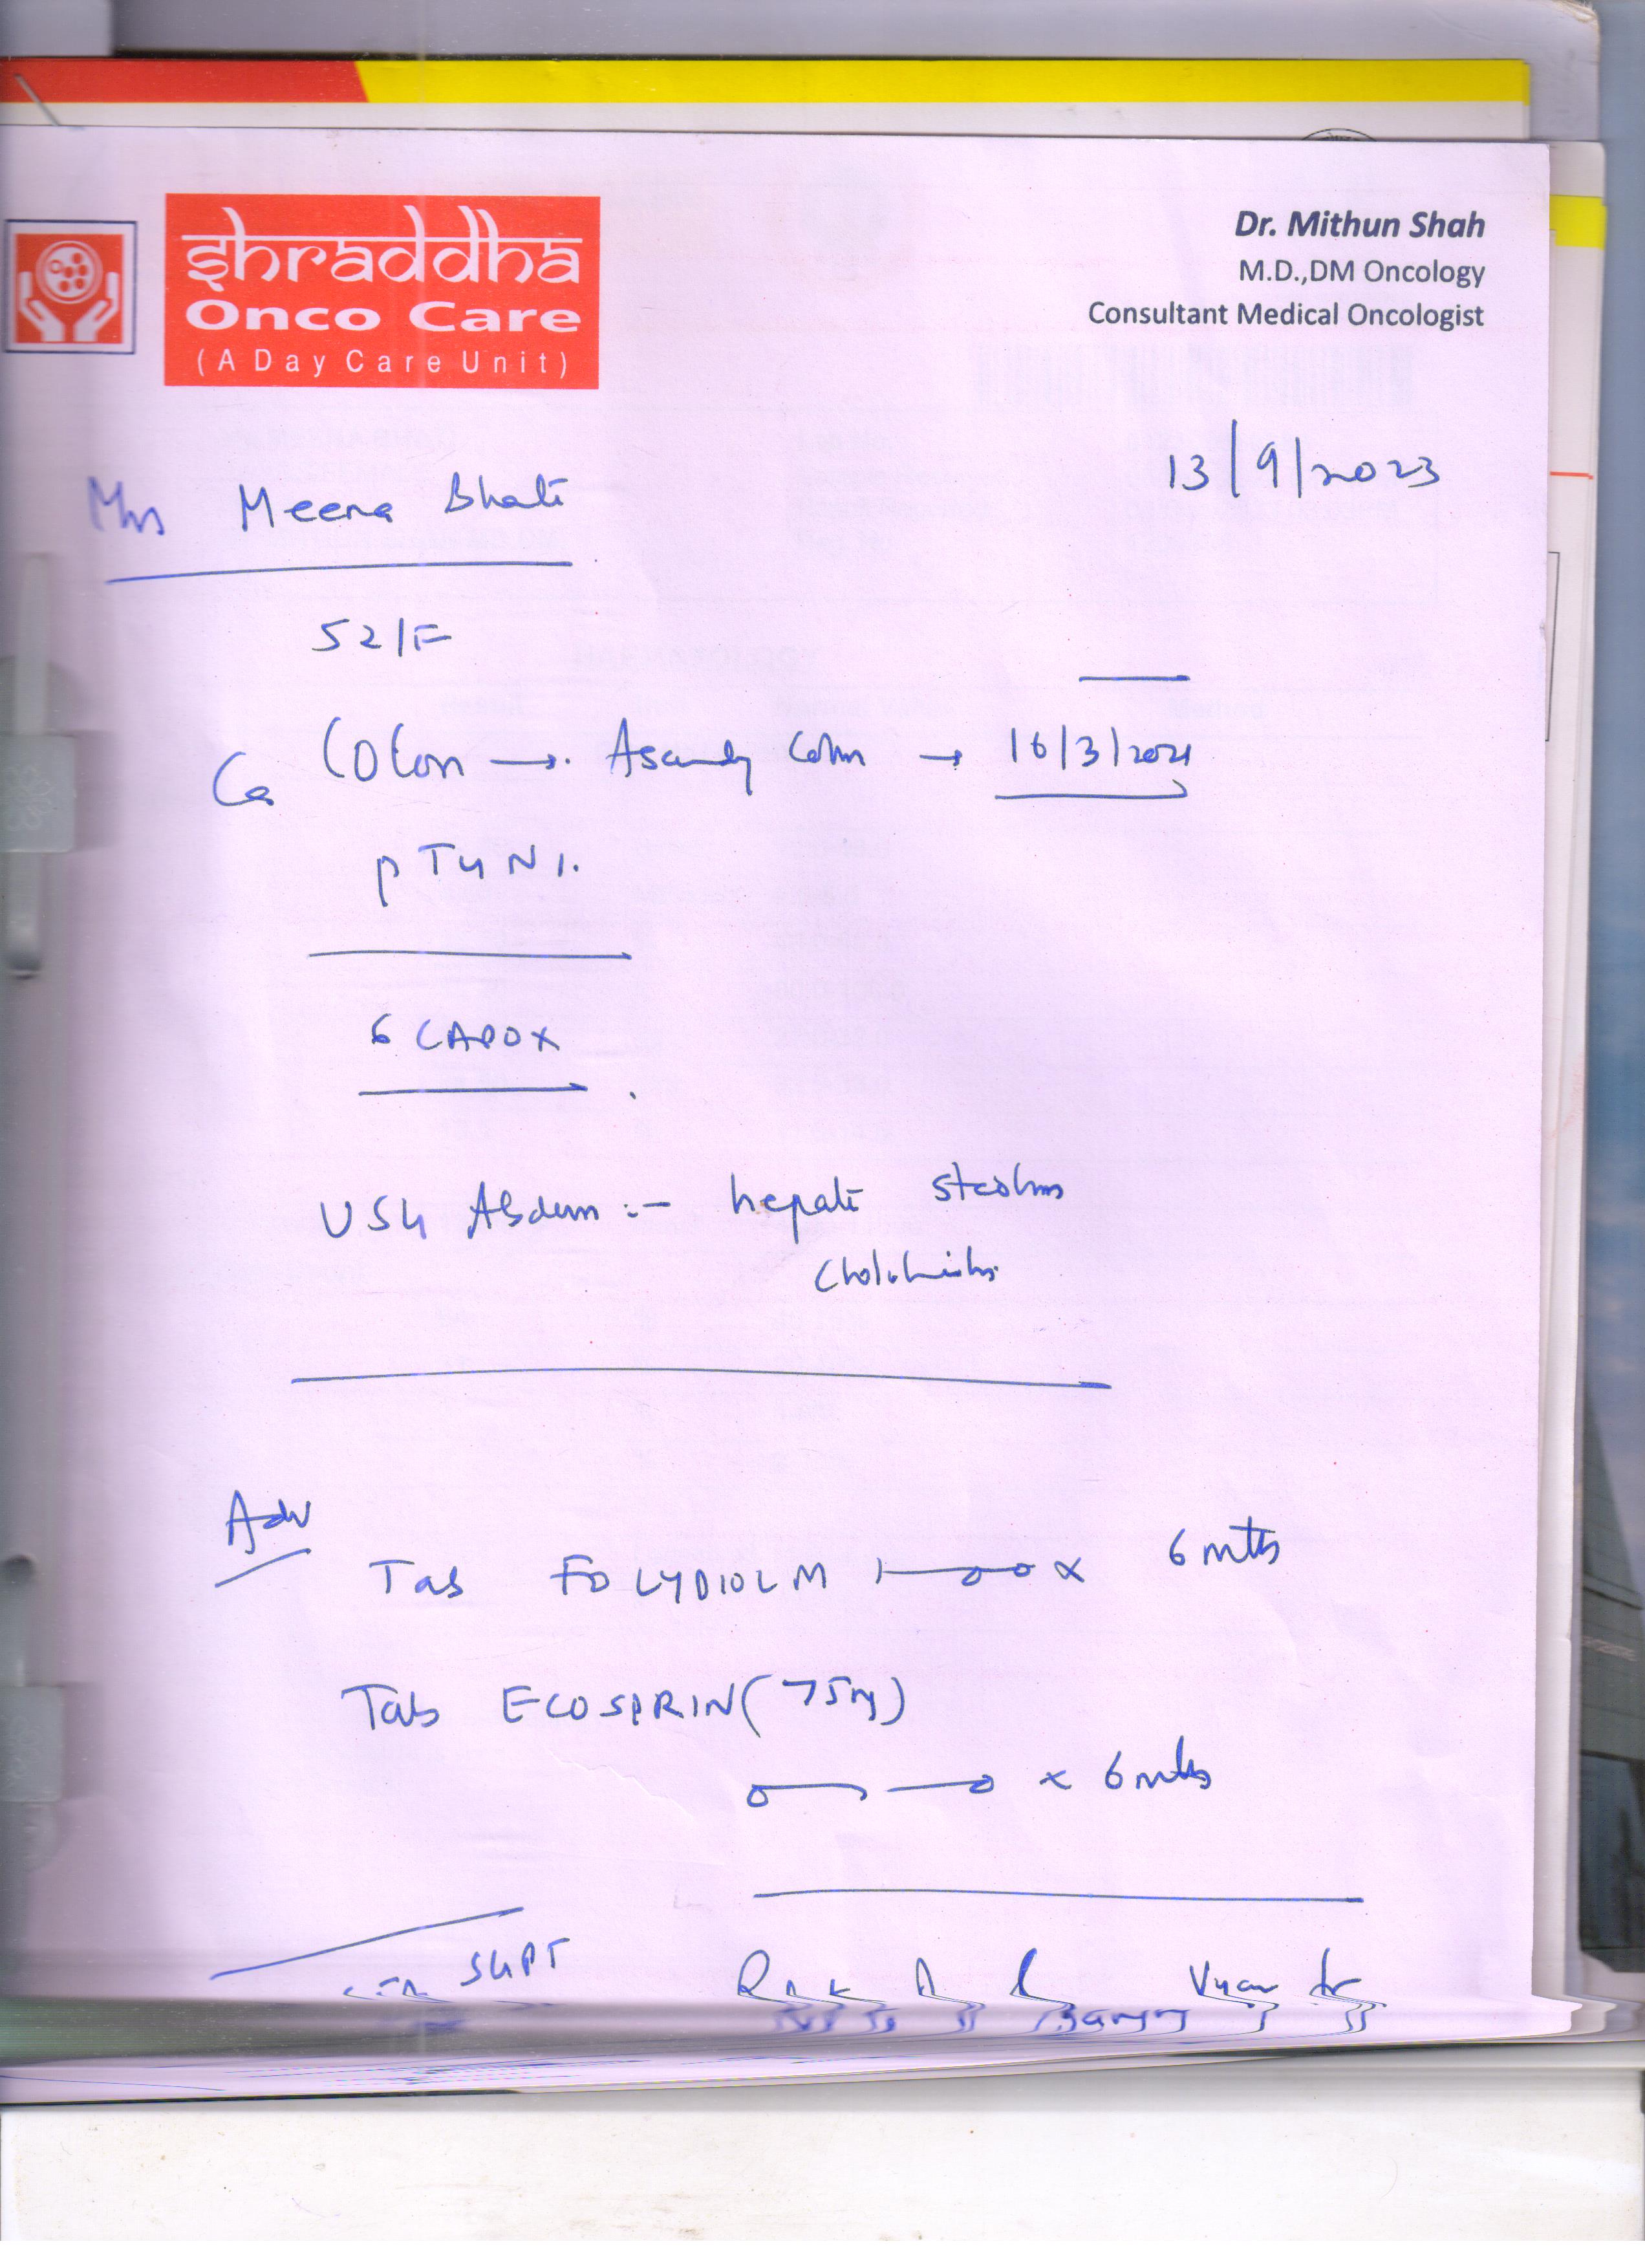 shraddha
Onco Care
(A Day Care Unit)
Dr. Mithun Shah
M.D.,DM Oncology
Consultant Medical Oncologist
13/9/2023
Mrs Meena Bhati
52/F
Ca Colon → Ascendg Colon → 16/3/2021
pT4N1.
6 CAPOX
USG Abdom :- hepatic
Adv
Tab FOLYDIOLM 1—0—0 x 6 mths
Tab ECOSPRIN (75mg)
x 6 mths
SGPT